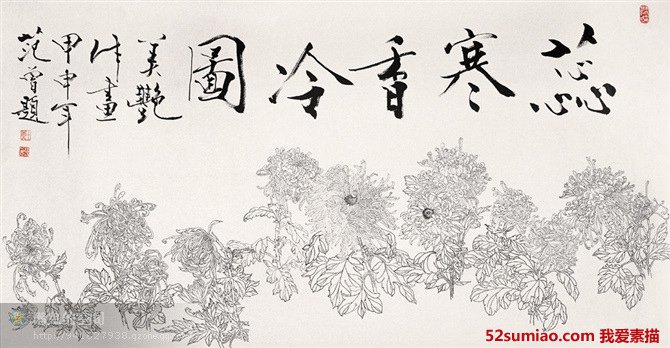 蕊寒香冷圖
美艷
畫
甲申年
范曾題
52sumiao.com 我爱素描